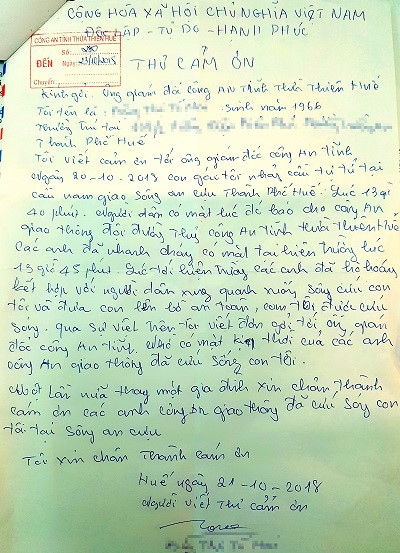 CỘNG HÒA XÃ HỘI CHỦ NGHĨA VIỆT NAM
ĐỘC LẬP - TỰ DO - HẠNH PHÚC
CÔNG AN TỈNH THỪA THIÊN HUẾ
Số:
ĐẾN Ngày: 23/10/2018
Chuyển:
THƯ CẢM ƠN
Kính gởi. Ông giám đốc công AN Tỉnh Thừa Thiên Huế
Tôi tên là: Sinh năm 1966
Thường trú tại
Thành Phố Huế
Tôi viết cảm ơn tới ông giám đốc công AN Tỉnh
Ngày 20-10-2018 con gái tôi nhảy cầu tự tử tại
cầu nam giao sông an cựu Thành Phố Huế. Lúc 13 giờ
40 phút. Người dân có mặt lúc đó báo cho công AN
giao thông đội đường Thủy công AN Tỉnh thừa Thiên Huế
Các anh đã nhanh chóng có mặt tại hiện trường lúc
13 giờ 45 phút. Lúc tới hiện trường các anh đã hô hoán
kết hợp với người dân xung quanh xuống sông cứu con
tôi và đưa con lên bờ an toàn, con tôi được cứu
sống. qua sự việc trên tôi viết đơn gởi tới ông giám
đốc công AN tỉnh. Nhờ có mặt kịp thời của các anh
công AN giao thông đã cứu sống con tôi.
Một lần nữa thay mặt gia đình xin chân thành
cảm ơn các anh công an giao thông đã cứu sống con
tôi tại sông an cựu
Tôi xin chân Thành cảm ơn
Huế ngày 21-10-2018
Người viết Thư cảm ơn